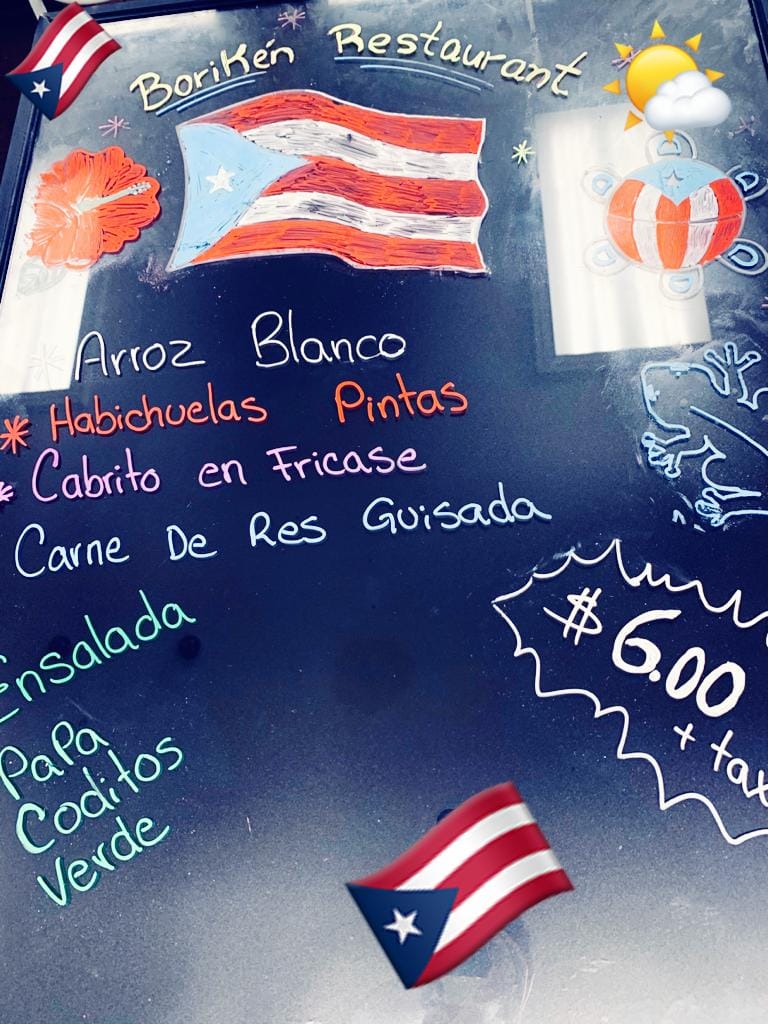 Borikén Restaurant
Arroz Blanco
* Habichuelas Pintas
* Cabrito en Fricase
Carne De Res Guisada
Ensalada
Papa
Coditos
Verde
$6.00
+ tax